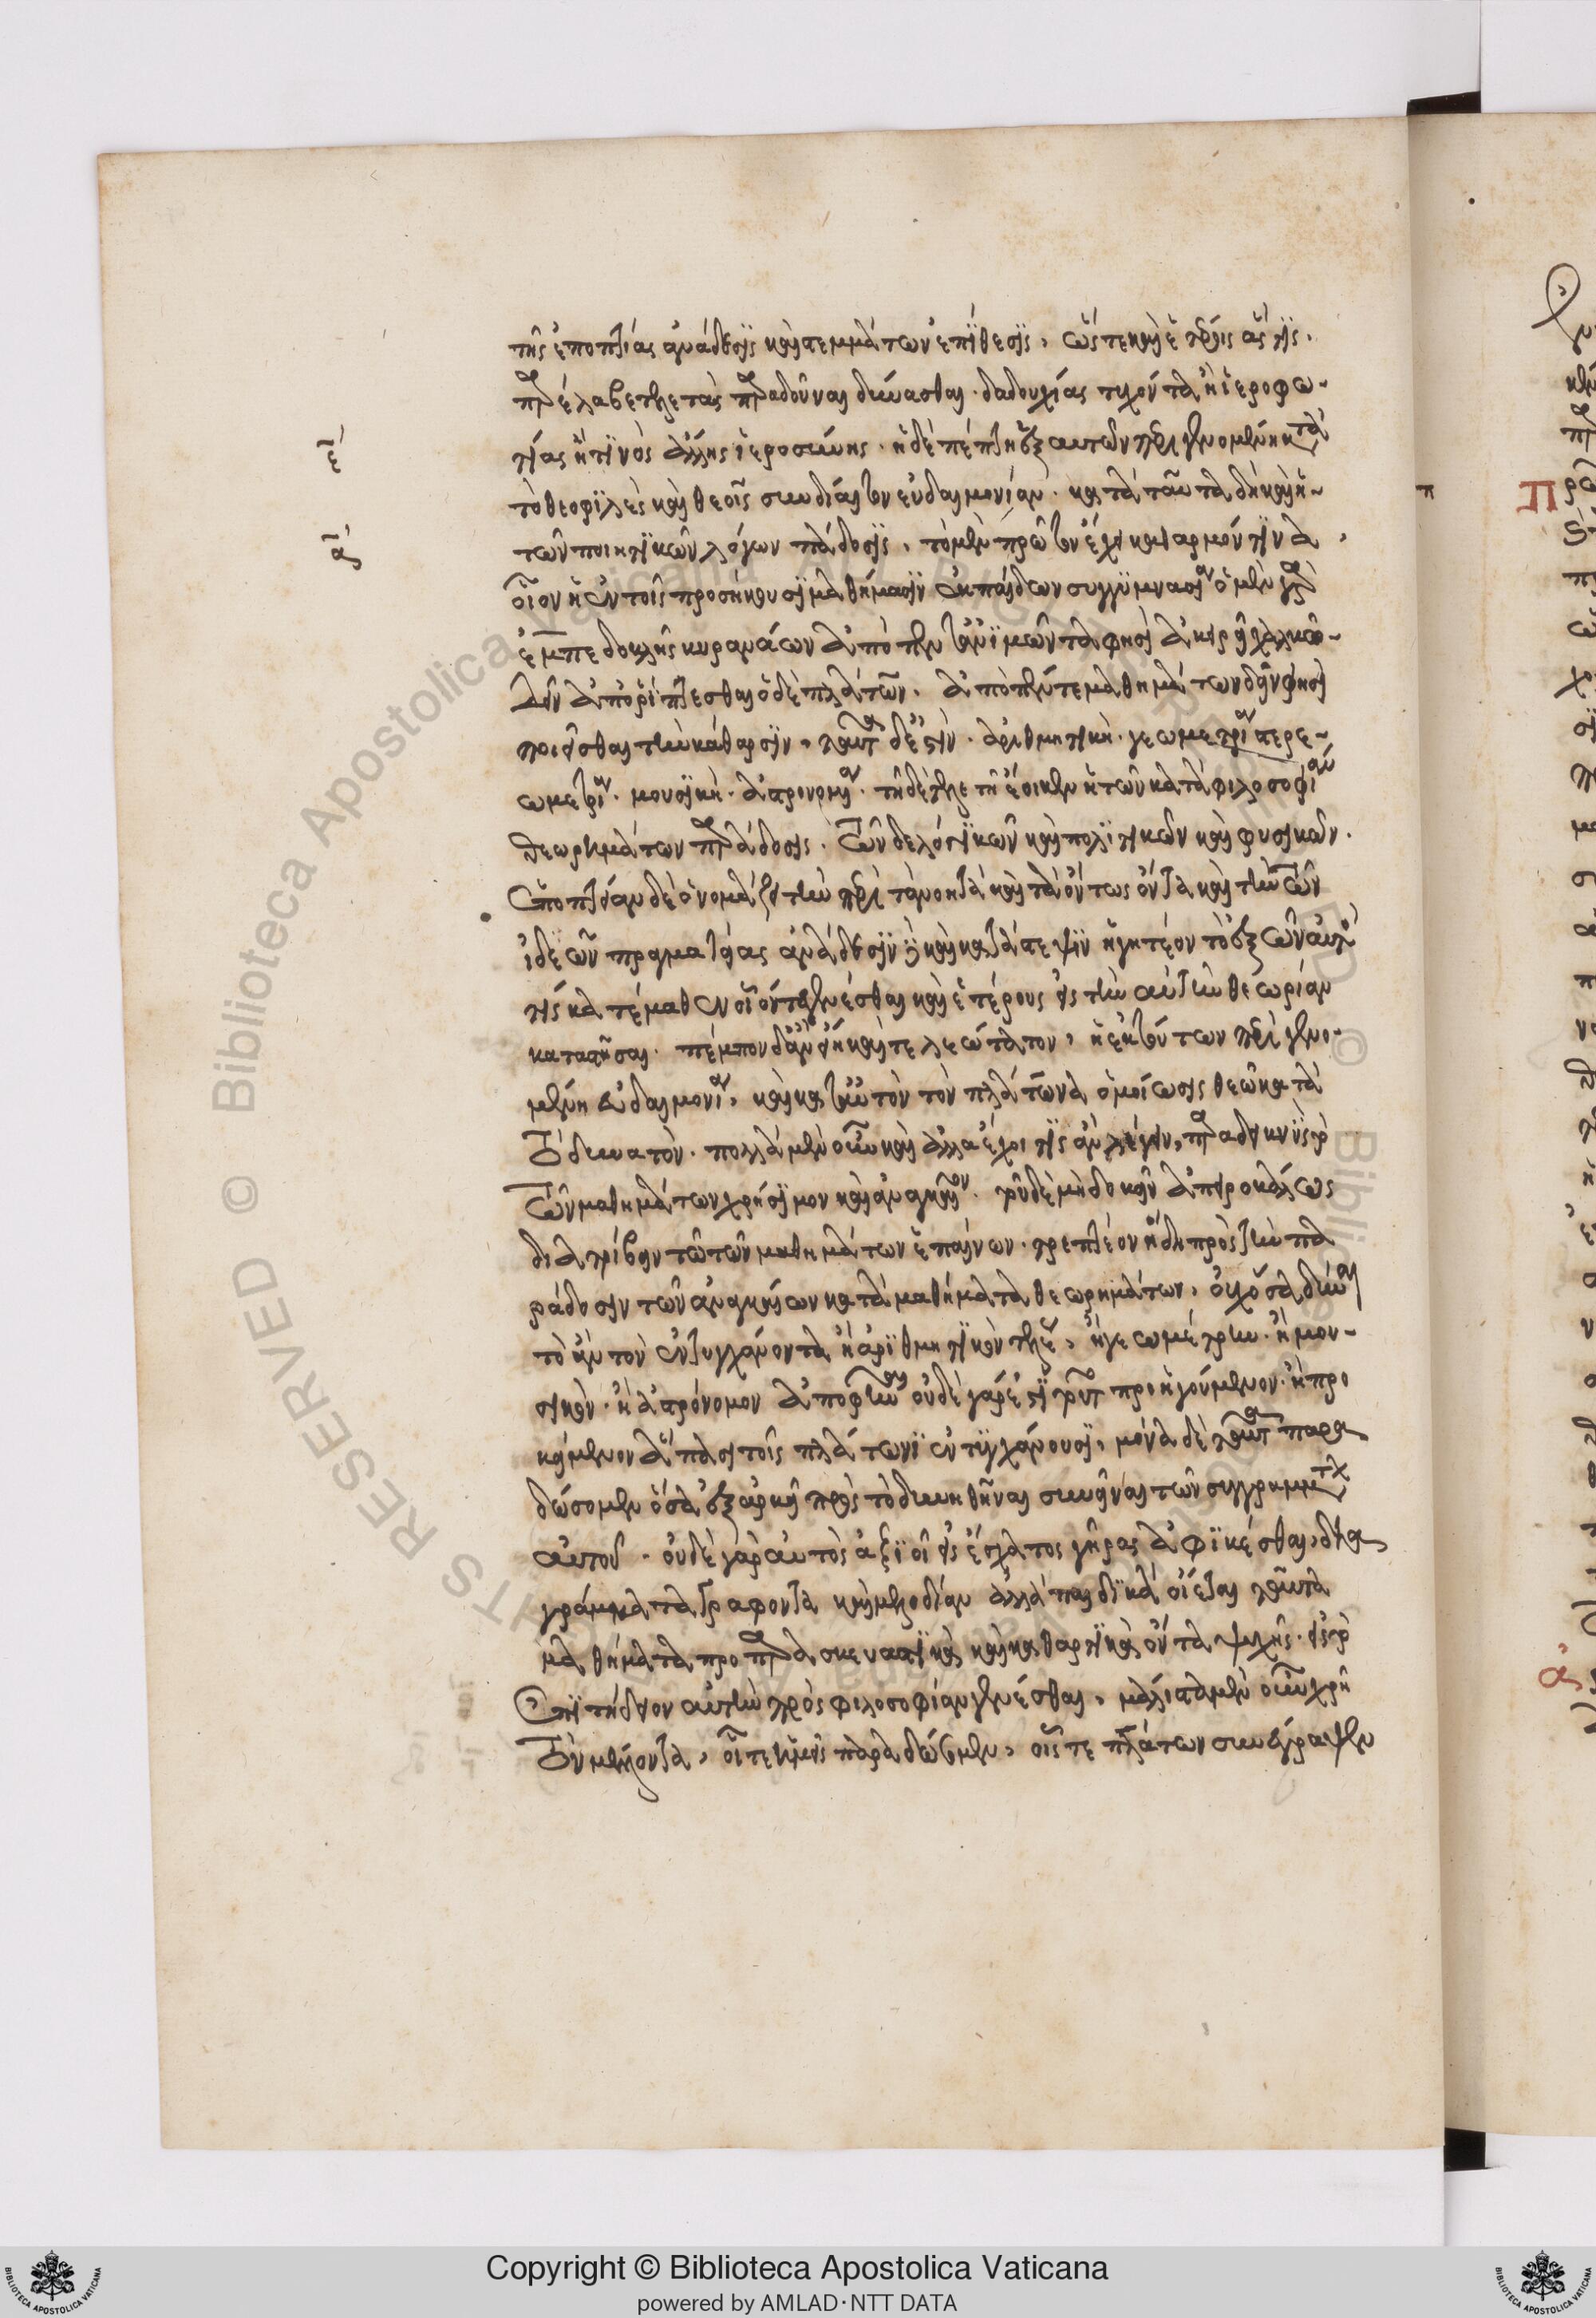 τῆς ἐποπτίας ἀνάδεσϊς καὶ στεμμάτων ἐπΐθεσϊς, ὥστε καὶ ἑτέροις ἅς τϊς.
παρέλαβε τελετὰς παραδοῦναι δύνασθαι. δαδουχίας τυχόντα ἢ ἱεροφω-
τίας ἤ τϊνὸς ἄλλης ἱεροσύνης. ἡ δὲ πέπτη ἐξ αυτῶν περιγενομένη κατὰ
ε̄
τὸ θεοφϊλὲς καὶ θεοῖς συνδίαιτον εὐδαιμονίαν. κατὰ ταῦτα δὴ καὶ ἡ-
τῶν ποιητϊκῶν λόγων παράδοσϊς, τὸ μὲν πρῶτον ἔχει καθαρμόν τϊνὰ,
ᾱ
οἷον ἡ ἐν τοῖς προσήκουσϊ μαθήμασϊν ἐκ παίδων συγγϋμνασία ὁ μὲν γὰρ
ἐμπεδοκλῆς κυραννάων ἀπὸ πεν τἀνϊμῶντα φησὶ ἀκηρει χαλκῶ-
δεῖν ἀπορίπτεσθαι ὁ δὲ πλάτων. ἀπὸ πέντε μαθημάτων δεῖν φησὶ
ποιεῖσθαι τὴν κάθαρσϊν, ταῦτα δέ ἐστϊν. ἀριθμητικὴ. γεωμετρία στερε-
ωμετρία. μουσϊκὴ. ἀστρονομία. τῆ δὲ τελετῆ ἔοικεν ἡ τῶν κατὰ φιλοσοφίαν
θεωρημάτων παράδοσις. τῶν δε λογϊκῶν καὶ πολϊτικῶν καὶ φυσικῶν.
ἐποπτείαν δὲ ὀνομάζει τὴν περὶ τὰ νοητὰ καὶ τὰ ὄντως ὄντα καὶ τὴν τῶν
ἰδεῶν πραγματείας ἀνάδεσϊν καὶ κατάστεψϊν ἡγητέον τὸ ἐξ ὧν αὐτὸ
τίς κατέμαθεν οἷόν τε γενέσθαι καὶ ἑτέρους εἰς τὴν αὐτὴν θεωρίαν
καταστῆσαι. πέμπον δἂν εἴη καὶ τελεώτατον, ἡ ἐκ τούτων περὶ γενο-
μένη εὐδαιμονία, καὶ κατ αὐτὸν τὸν πλάτωνα ὁμοίωσις θεῶ κατὰ
τὸ δυνατὸν. πολλὰ μὲν οὖν καὶ ἄλλα ἔχοι τϊς ἂν λέγειν, παραδεικνῢς τὸ
τῶν μαθημάτων χρήσϊμον καὶ ἀναγκαῖον. τοῦ δὲ μὴ δοκεῖν ἀπειροκάλως
διατρίβειν τῶ τῶν μαθημάτων ἐπαίνων. τρεπτέον ἤδη πρὸς τὴν πα
ράδοσιν τῶν ἀναγκαίων κατὰ μαθήματα θεωρημάτων, οὐχ ὅσα δύναι
τὸ ἂν τὸν ἐντυγχάνοντα ἢ ἀρϊθμητϊκὸν τελε, ἢ γεωμέτρην. ἢ μου-
σικὸν. ἢ ἀστρόνομον ἀποφῆναι οὐδὲ γάρ ἐστϊ τοῦτο προηγούμενον. ἢ προ
κείμενον ἅπασι τοῖς πλάτωνϊ ἐντϋγχάνουσϊ, μόνα δὲ ταῦτα παρα
δώσομεν ὅσα ἐξαρκεῖ πρὸς τὸ δυνηθῆναι συνεῖναι τῶν συγγραμμάτων
αὐτοῦ. οὐδὲ γὰρ αὐτὸς ἀξϊοῖ εἰς ἔσχατος γῆρας ἀφϊκέσθαι, δια
γράμματα γραφοντα καὶ μελοδίαν ἀλλὰ παιδϊκὰ οἴεται ταῦτα
μαθήματα προπαρασκευαστϊκὰ καὶ καθαρτϊκὰ ὄντα ψυχῆς. εἰς τὸ
ἐπϊτήδειον αὐτὴν πρὸς φιλοσοφίαν γενέσθαι, μάλιστα μὲν οὖν χρὴ
τὸν μέλλοντα, οἷς τε ἡμεῖς παραδώσομεν, οἷς τε πλάτων συνέγραψεν
Copyright © Biblioteca Apostolica Vaticana
powered by AMLAD·NTT DATA